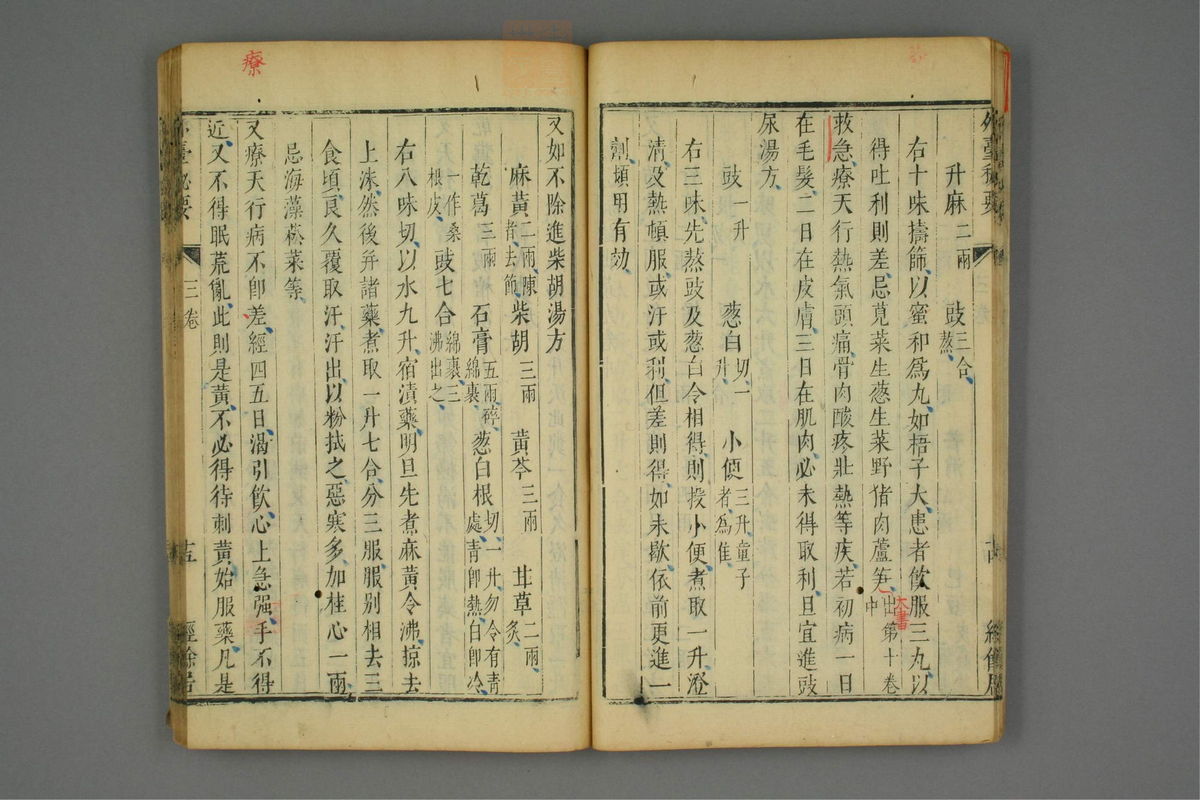 外臺秘要
升麻二兩 豉三合熬
右十味擣篩以蜜和爲丸如梧子大患者飲服三丸以
得吐利則差忌莧菜生葱生菜野猪肉蘆笋出第十卷中
大書
救急療天行熱氣頭痛骨肉酸疼壯熱等疾若初病一日
在毛髮二日在皮膚三日在肌肉必未得取利且宜進豉
尿湯方
豉一升 葱白切一升 小便三升童子者為佳
右三味先熬豉及葱白令相得則投小便煮取一升澄
清及熱頓服或汗或利但差則得如未歇依前更進一
劑頻用有効
又如不除進柴胡湯方
麻黄二兩陳者去節 柴胡三兩 黄芩三兩 甘草二兩炙
乾葛三兩 石膏五兩碎綿裹 葱白根切一升勿令有青處青即熱白即冷
一作桑根皮 豉七合綿裹三沸出之
右八味切以水九升宿漬藥明旦先煮麻黄令沸掠去
上沫然後并諸藥煮取一升七合分三服服别相去三
食頃良久覆取汗汗出以粉拭之惡寒多加桂心一兩
忌海藻菘菜等
又療天行病不卽差經四五日渴引飲心上急强手不得
近又不得眠荒亂此則是黄不必得待刺黄始服藥凡是
臺秘要
三卷
十五
經餘居
療